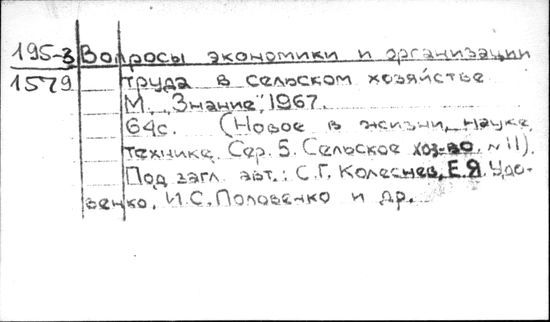 195-3 Вопросы экономики и организации
1579 труда в сельском хозяйстве
М., "Знание", 1967.
64с. (Новое в жизни, науке,
технике. Сер. 5. Сельское хоз-во. №11).
Под загл. авт.: С.Г. Колеснев, Е.Я. Удо-
венко, И.С. Половенко и др.